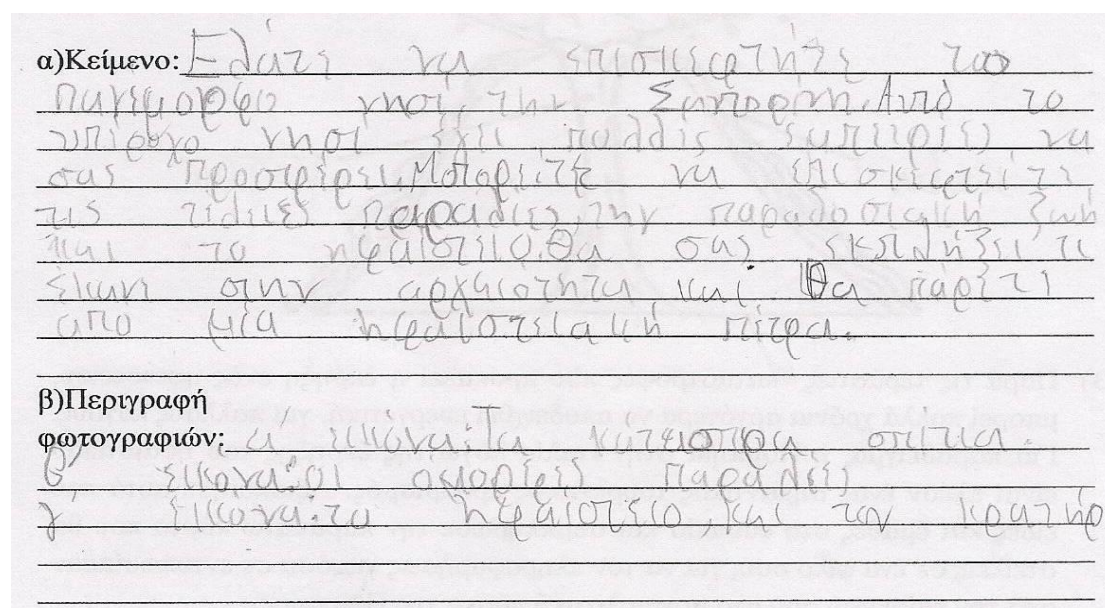 α)Κείμενο: Ελάτε να επισκεφτήτε το
πανέμορφο νησί την Σαντορίνη. Από το
υπέροχο νησί έχει πολλές εμπειρίες να
σας προσφέρει. Μπορείτε να επισκεφτείτε
τις τέλειες παραλίες, την παραδοσιακή ζωή
και το ηφαίστειο. Θα σας εκπλήξει τι
έκανε στην αρχαιότητα και θα πάρετε
απο μία ηφαιστειακή πέτρα.
β)Περιγραφή
φωτογραφιών: α εικόνα: Τα κάτασπρα σπίτια.
β εικόνα: Οι όμορφες παραλίες
γ εικόνα: το ηφαίστειο και τον κρατήρ